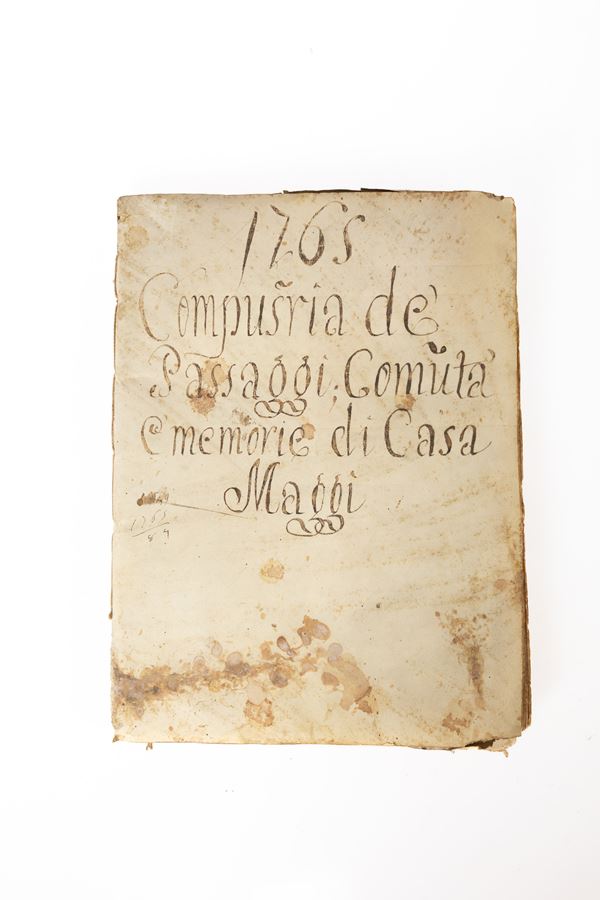 1765
Compusr̃ia de
Passaggi, Comũta
e memorie di Casa
Maggi
1765
84